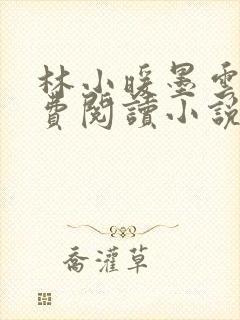 林小暖墨雲
費閱讀小說
喬灌草